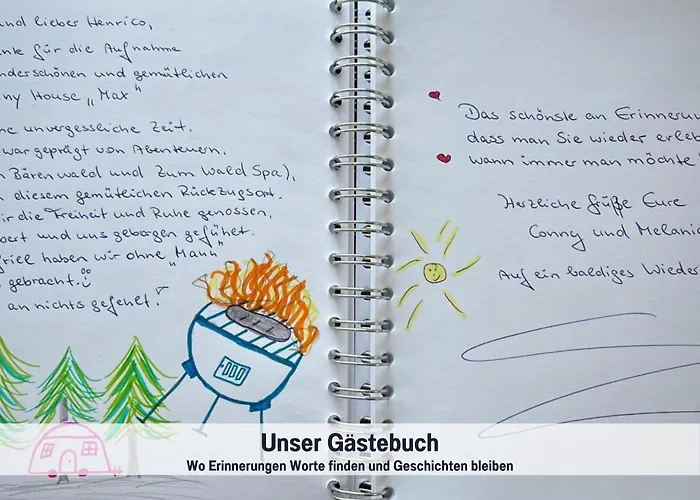 und lieber Henrico,
nke für die Aufnahme
nderschönen und gemütlichen
ny House „Max"
ne unvergessliche Zeit.
war geprägt von Abenteuern,
n Bärenwald und zum Wald Spa),
n diesem gemütlichen Rückzugsort.
ir die Freiheit und Ruhe genossen,
bert und uns geborgen gefühlt.
Griel haben wir ohne „Mann"
gebracht.
an nichts gefehlt.
Das schönste an Erinnerun
dass man Sie wieder erleb
wann immer man möchte
Herzliche Grüße Eure
Conny und Melanie
Auf ein baldiges Wieder
Unser Gästebuch
Wo Erinnerungen Worte finden und Geschichten bleiben